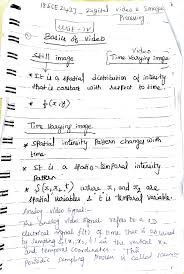 18SCE242J - Digital Video & Image
Processing
Unit - IV
Basics of Video
Still image
Video
Time Varying image
* It is a spatial distribution of intensity
that is constant with respect to time
* f(x,y)
Time Varying image
* spatial intensity pattern changes with
time.
* It is a spatio-temporal intensity
pattern
* f(x1,x2,t) where x1 and x2 are
spatial variables & t is temporal variable.
Analog video signal:-
The analog video signal refers to a 1D
electrical signal f(t) of time that is obtained
by sampling f(x1,x2,t) in the vertical x2
and temporal coordinates - This
Periodic sampling process is called scanning